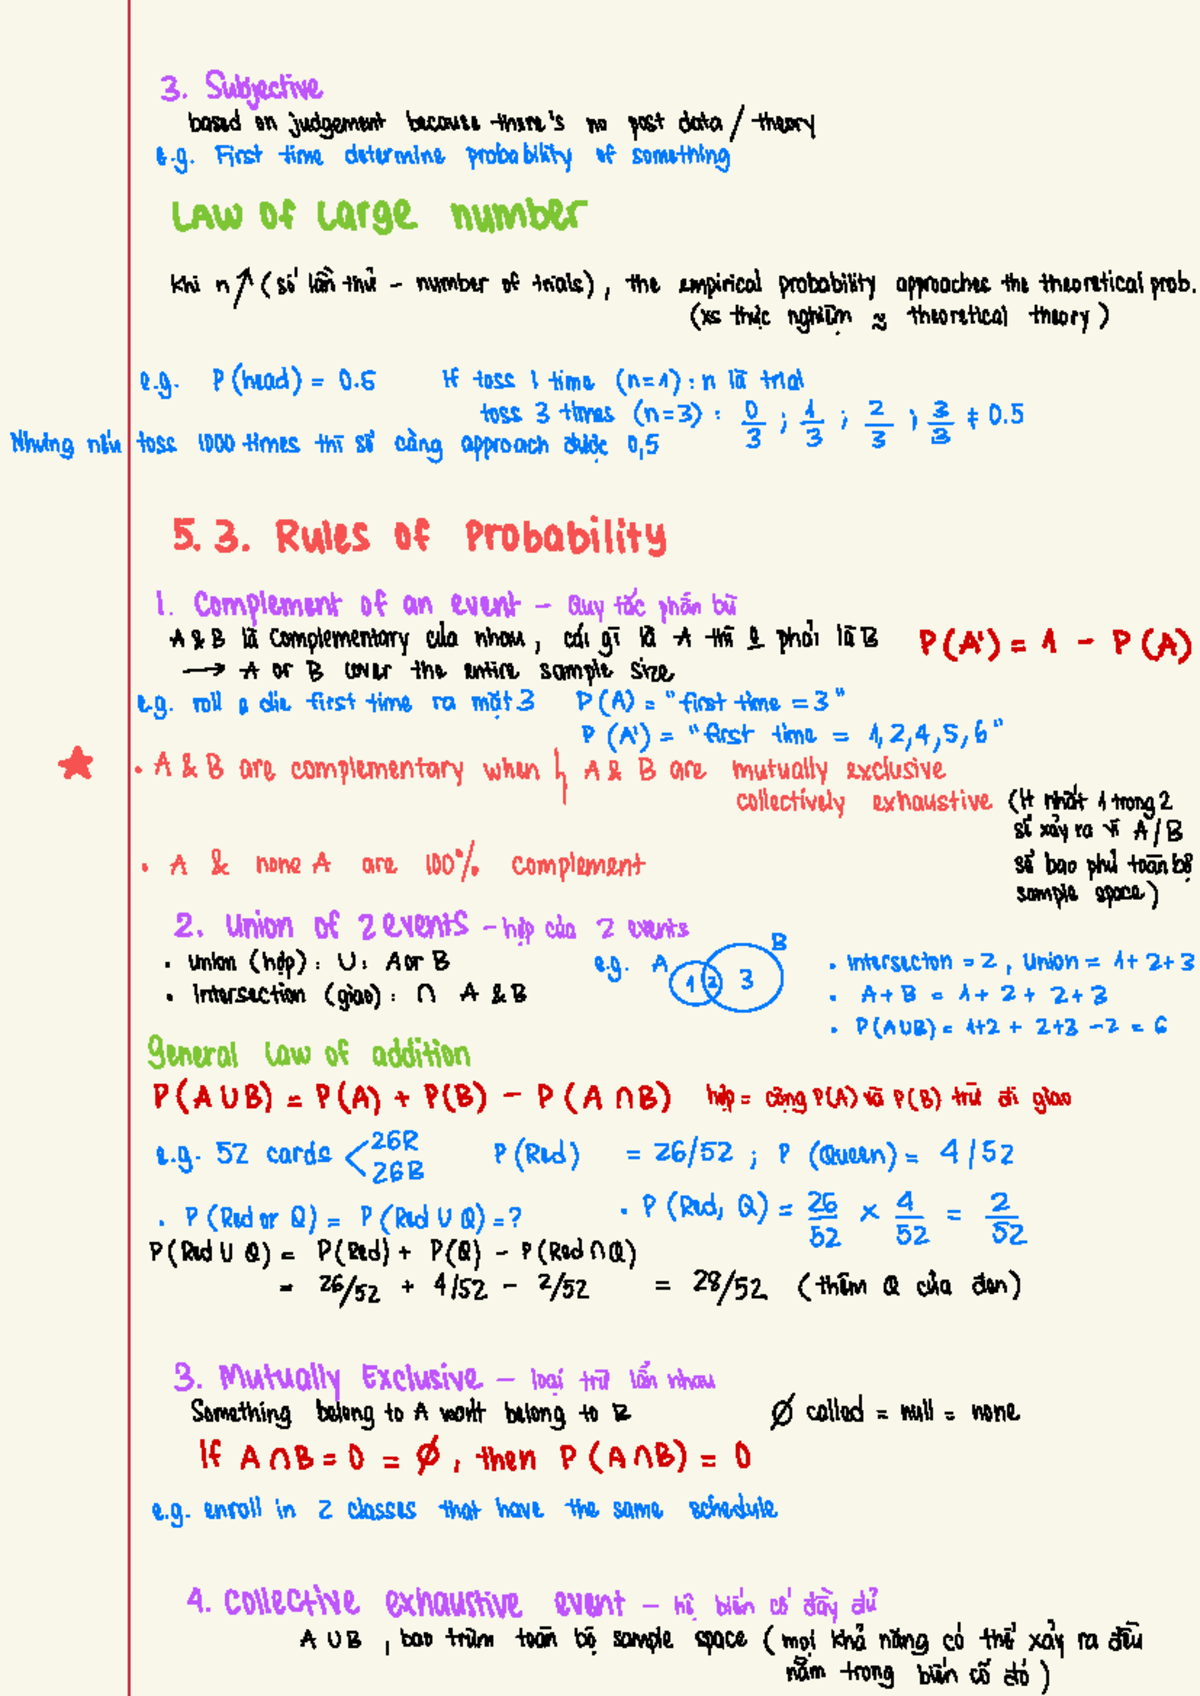 3. Subjective
based on judgement because there's no past data / theory
e.g. First time determine probability of something
LAW OF Large number
Khi n↗ (số lần thử - number of trials), the empirical probability approaches the theoretical prob.
(xs thực nghiệm ≈ theoretical theory)
e.g. P(head) = 0.5 If toss 1 time (n=1): n là trial
toss 3 times (n=3): 0/3 ; 1/3 ; 2/3 ; 3/3 ≠ 0.5
Nhưng nếu toss 1000 times thì sẽ càng approach được 0,5
5.3. Rules of Probability
1. Complement of an event - Quy tắc phần bù
A & B là Complementary của nhau, cái gì là A thì phải là B P(A') = 1 - P(A)
→ A or B cover the entire sample size
e.g. roll a die first time ra mặt 3 P(A) = "first time = 3"
P(A') = "first time = 1,2,4,5,6"
★ • A & B are complementary when A & B are mutually exclusive
collectively exhaustive (ít nhất 1 trong 2
sẽ xảy ra vì A/B
sẽ bao phủ toàn bộ
sample space)
• A & none A are 100% complement
2. Union of 2 events - hợp của 2 events
• Union (hợp): ∪: A or B
• Intersection (giao): ∩ A & B
e.g. A 1 2 3 B
• Intersecton = 2, Union = 1+2+3
• A+B = 1+2+2+3
• P(A∪B) = 1+2 + 2+3 -2 = 6
General Law of addition
P(A∪B) = P(A) + P(B) - P(A∩B) hợp = cộng P(A) và P(B) trừ đi giao
e.g. 52 cards < 26R 26B P(Red) = 26/52 ; P(Queen) = 4/52
• P(Red or Q) = P(Red ∪ Q) = ? • P(Red, Q) = 26/52 × 4/52 = 2/52
P(Red ∪ Q) = P(Red) + P(Q) - P(Red ∩ Q)
= 26/52 + 4/52 - 2/52 = 28/52 (thêm Q của đen)
3. Mutually Exclusive - loại trừ lẫn nhau
Something belong to A won't belong to B Ø called = null = none
If A∩B = 0 = Ø, then P(A∩B) = 0
e.g. enroll in 2 classes that have the same schedule
4. Collective exhaustive event - hệ biến cố đầy đủ
A∪B, bao trùm toàn bộ sample space (mọi khả năng có thể xảy ra đều
nằm trong biến cố đó)